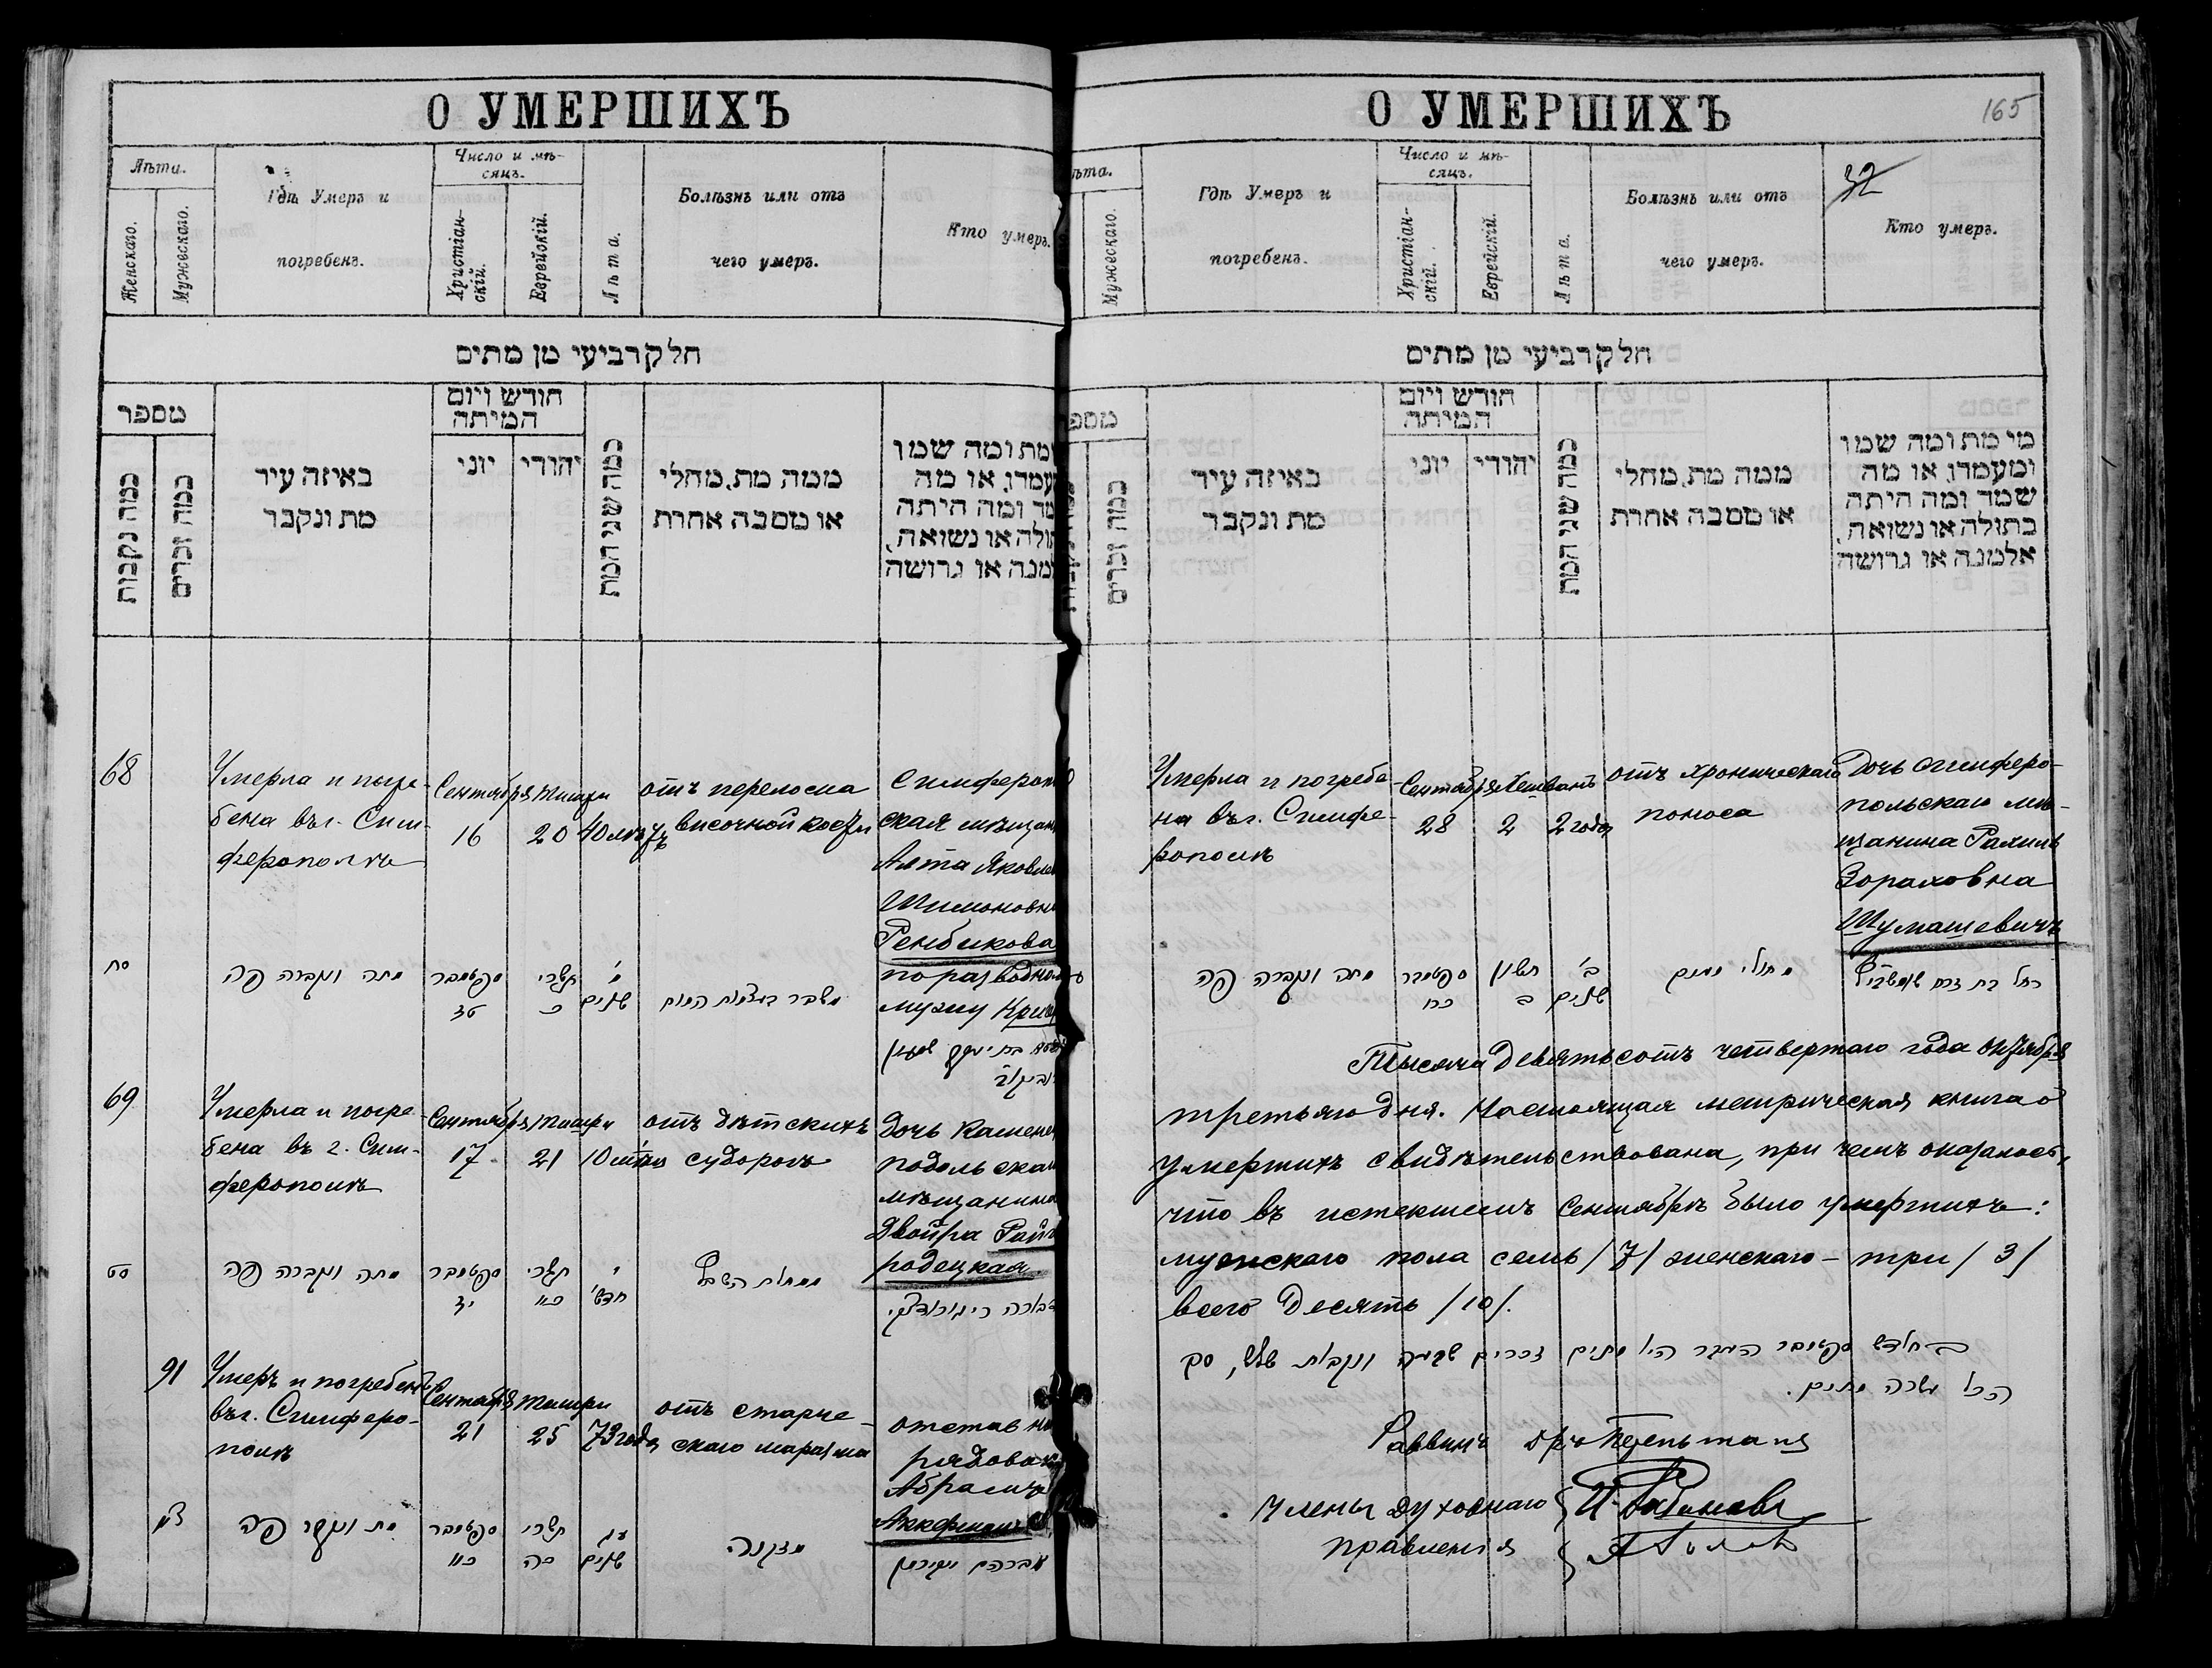 О УМЕРШИХЪ
Лѣта.
Женскаго.
Мужескаго.
Гдѣ Умеръ и
погребенъ.
Число и мѣ-
сяцъ.
Христіан-
скій.
Еврейскій.
Лѣта.
Болѣзнь или отъ
чего умеръ.
Кто умеръ.
חלק רביעי מן מתים
מספר
כמה נקבות
כמה זכרים
באיזה עיר
מת ונקבר
חודש ויום
המיתה
יוני
יהודי
כמה שני המת
ממה מת, מחלי
או מסבה אחרת
מת ומה שמו
עמדו, או מה
מה ומה היתה
תולה או נשואה,
מנה או גרושה
68
Умерла и погре-
бена въ г. Сим-
ферополѣ
Сентября
16
Тишри
20
40 лѣтъ
отъ перелома
височной кости
Симферопо
ская мѣщан
Яковле
Шимоновна
Рембикова
по разводном
мужу
סח
מתה ונקברה פה
סקטובר
טז
תשרי
כ
מ'
שנים
משבר בעצמות המוח
בת יעקב
69
Умерла и погре-
бена въ г. Сим-
ферополѣ
Сентября
17
Тишри
21
10
отъ дѣтскихъ
судорогъ
Дочь Камене
подольскаго
мѣщанина
Двойра Рай
родецкая.
סט
מתה ונקברה פה
סקטובר
יז
תשרי
כא
י
חדשי'
ממחלת השבץ
דבורה
91
Умеръ и погребенъ
въ г. Симферо-
полѣ
Сентября
21
Тишри
25
73 года
отъ старче-
скаго маразма
отставно
рядовой
Абрамъ
צא
מת ונקבר פה
סקטובר
כא
תשרי
כה
עג
שנים
מזקנה
אברהם
О УМЕРШИХЪ
165
32
ѣта.
Мужескаго.
Гдѣ Умеръ и
погребенъ.
Число и мѣ-
сяцъ.
Христіан-
скій.
Еврейскій.
Лѣта.
Болѣзнь или отъ
чего умеръ.
Кто умеръ.
חלק רביעי מן מתים
מספ
כמה זכרים
באיזה עיר
מת ונקבר
חודש ויום
המיתה
יוני
יהודי
כמה שני המת
ממה מת, מחלי
או מסבה אחרת
מי מת ומה שמו
ומעמדו, או מה
שמה ומה היתה
בתולה או נשואה,
אלמנה או גרושה
Умерла и погребе-
на въ г. Симфе-
рополѣ
Сентября
28
Хешванъ
2
2 года
отъ хроническаго
поноса
Дочь симферо-
польскаго мѣ-
щанина Рахиль
Зораховна
Шумашевичъ
מתה ונקברה פה
סקטובר
כח
חשון
ב
ב'
שנים
מחולי מעים
רחל בת זרח
Тысяча девятьсотъ четвертаго года октября
третьяго дня. Настоящая метрическая книга о
умершихъ свидѣтельствована, при чемъ оказалось,
что въ истекшемъ Сентябрѣ было умершихъ:
мужскаго пола семь /7/ женскаго – три /3/
всего десять /10/.
בחודש סקטובר העבר היו מתים זכרים שבעה ונקבות שלש, סך
הכל עשרה מתים.
Раввинъ
Члены духовнаго
правленія